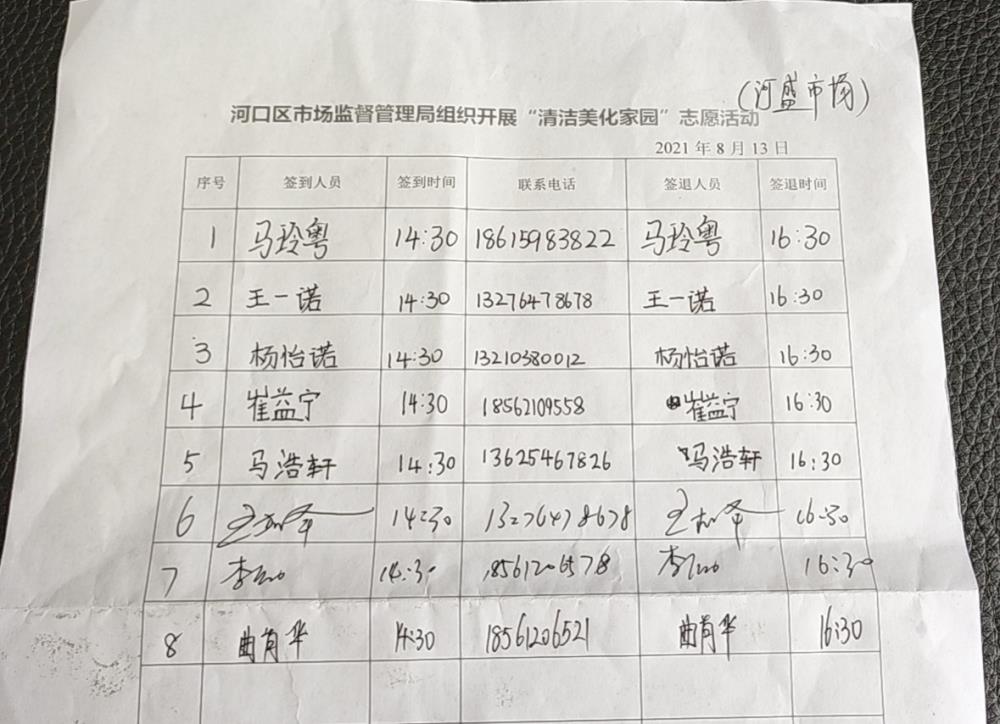 (河盛市场)
河口区市场监督管理局组织开展“清洁美化家园”志愿活动
2021 年 8 月 13 日
序号 签到人员 签到时间 联系电话 签退人员 签退时间
1 马玲粤 14:30 18615983822 马玲粤 16:30
2 王一诺 14:30 13276478678 王一诺 16:30
3 杨怡诺 14:30 13210380012 杨怡诺 16:30
4 崔益宁 14:30 18562109558 崔益宁 16:30
5 马浩轩 14:30 13625467826 马浩轩 16:30
6 14:30 13276478678 16:30
7 14:30 18561206578 16:30
8 曲肖华 14:30 18561206521 曲肖华 16:30